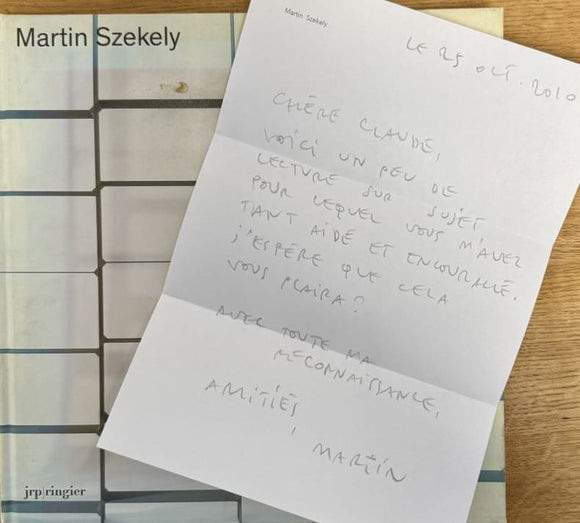 Martin Szekely
jrp|ringier
Martin Szekely
LE 25 OCT. 2010
CHÈRE CLAUDE,
VOICI UN PEU DE
LECTURE SUR SUJET
POUR LEQUEL VOUS M'AVEZ
TANT AIDÉ ET ENCOURAGÉ.
J'ESPÈRE QUE CELA
VOUS PLAIRA?
AVEC TOUTE MA
RECONNAISSANCE,
AMITIÉS,
MARTIN